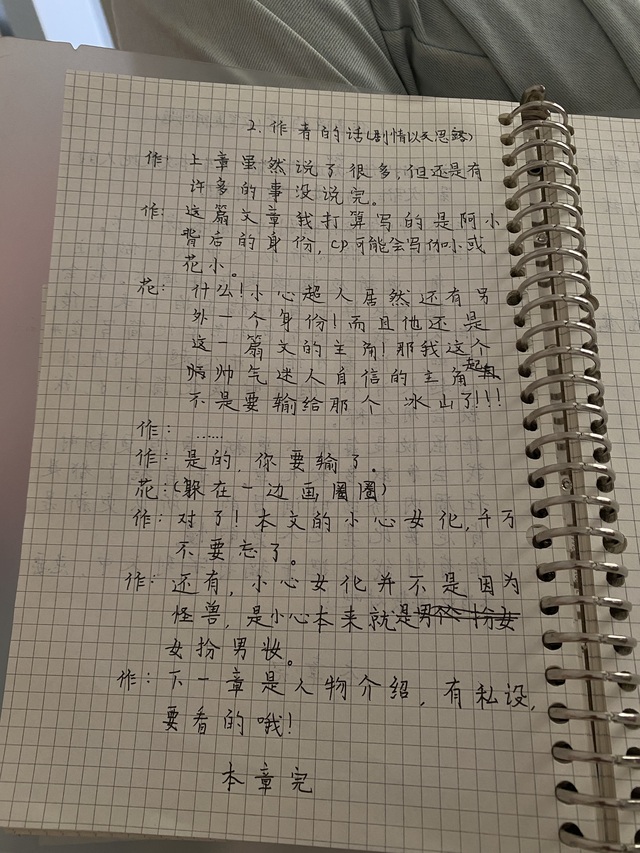 2. 作者的话(剧情以及思路)
作: 上章虽然说了很多,但还是有
许多的事没说完。
作: 这篇文章我打算写的是阿小
背后的身份, cp可能会写伽小或
花小。
花: 什么!小心超人居然还有另
外一个身份!而且他还是
这一篇文的主角!那我这个
帅气迷人自信的主角起
不是要输给那个 冰山了!!!
作: ……
作: 是的,你要输了。
花:(躲在一边画圈圈)
作: 对了!本文的小心女化,千万
不要忘了。
作: 还有,小心女化并不是因为
怪兽,是小心本来就是
女扮男妆。
作: 下一章是人物介绍,有私设,
要看的哦!
本章完